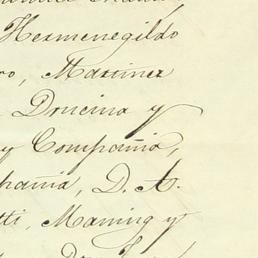 Hermenegildo
ro, Martinez
Doucina y
y Compañia,
pañia, D. A.
tti, Maming y